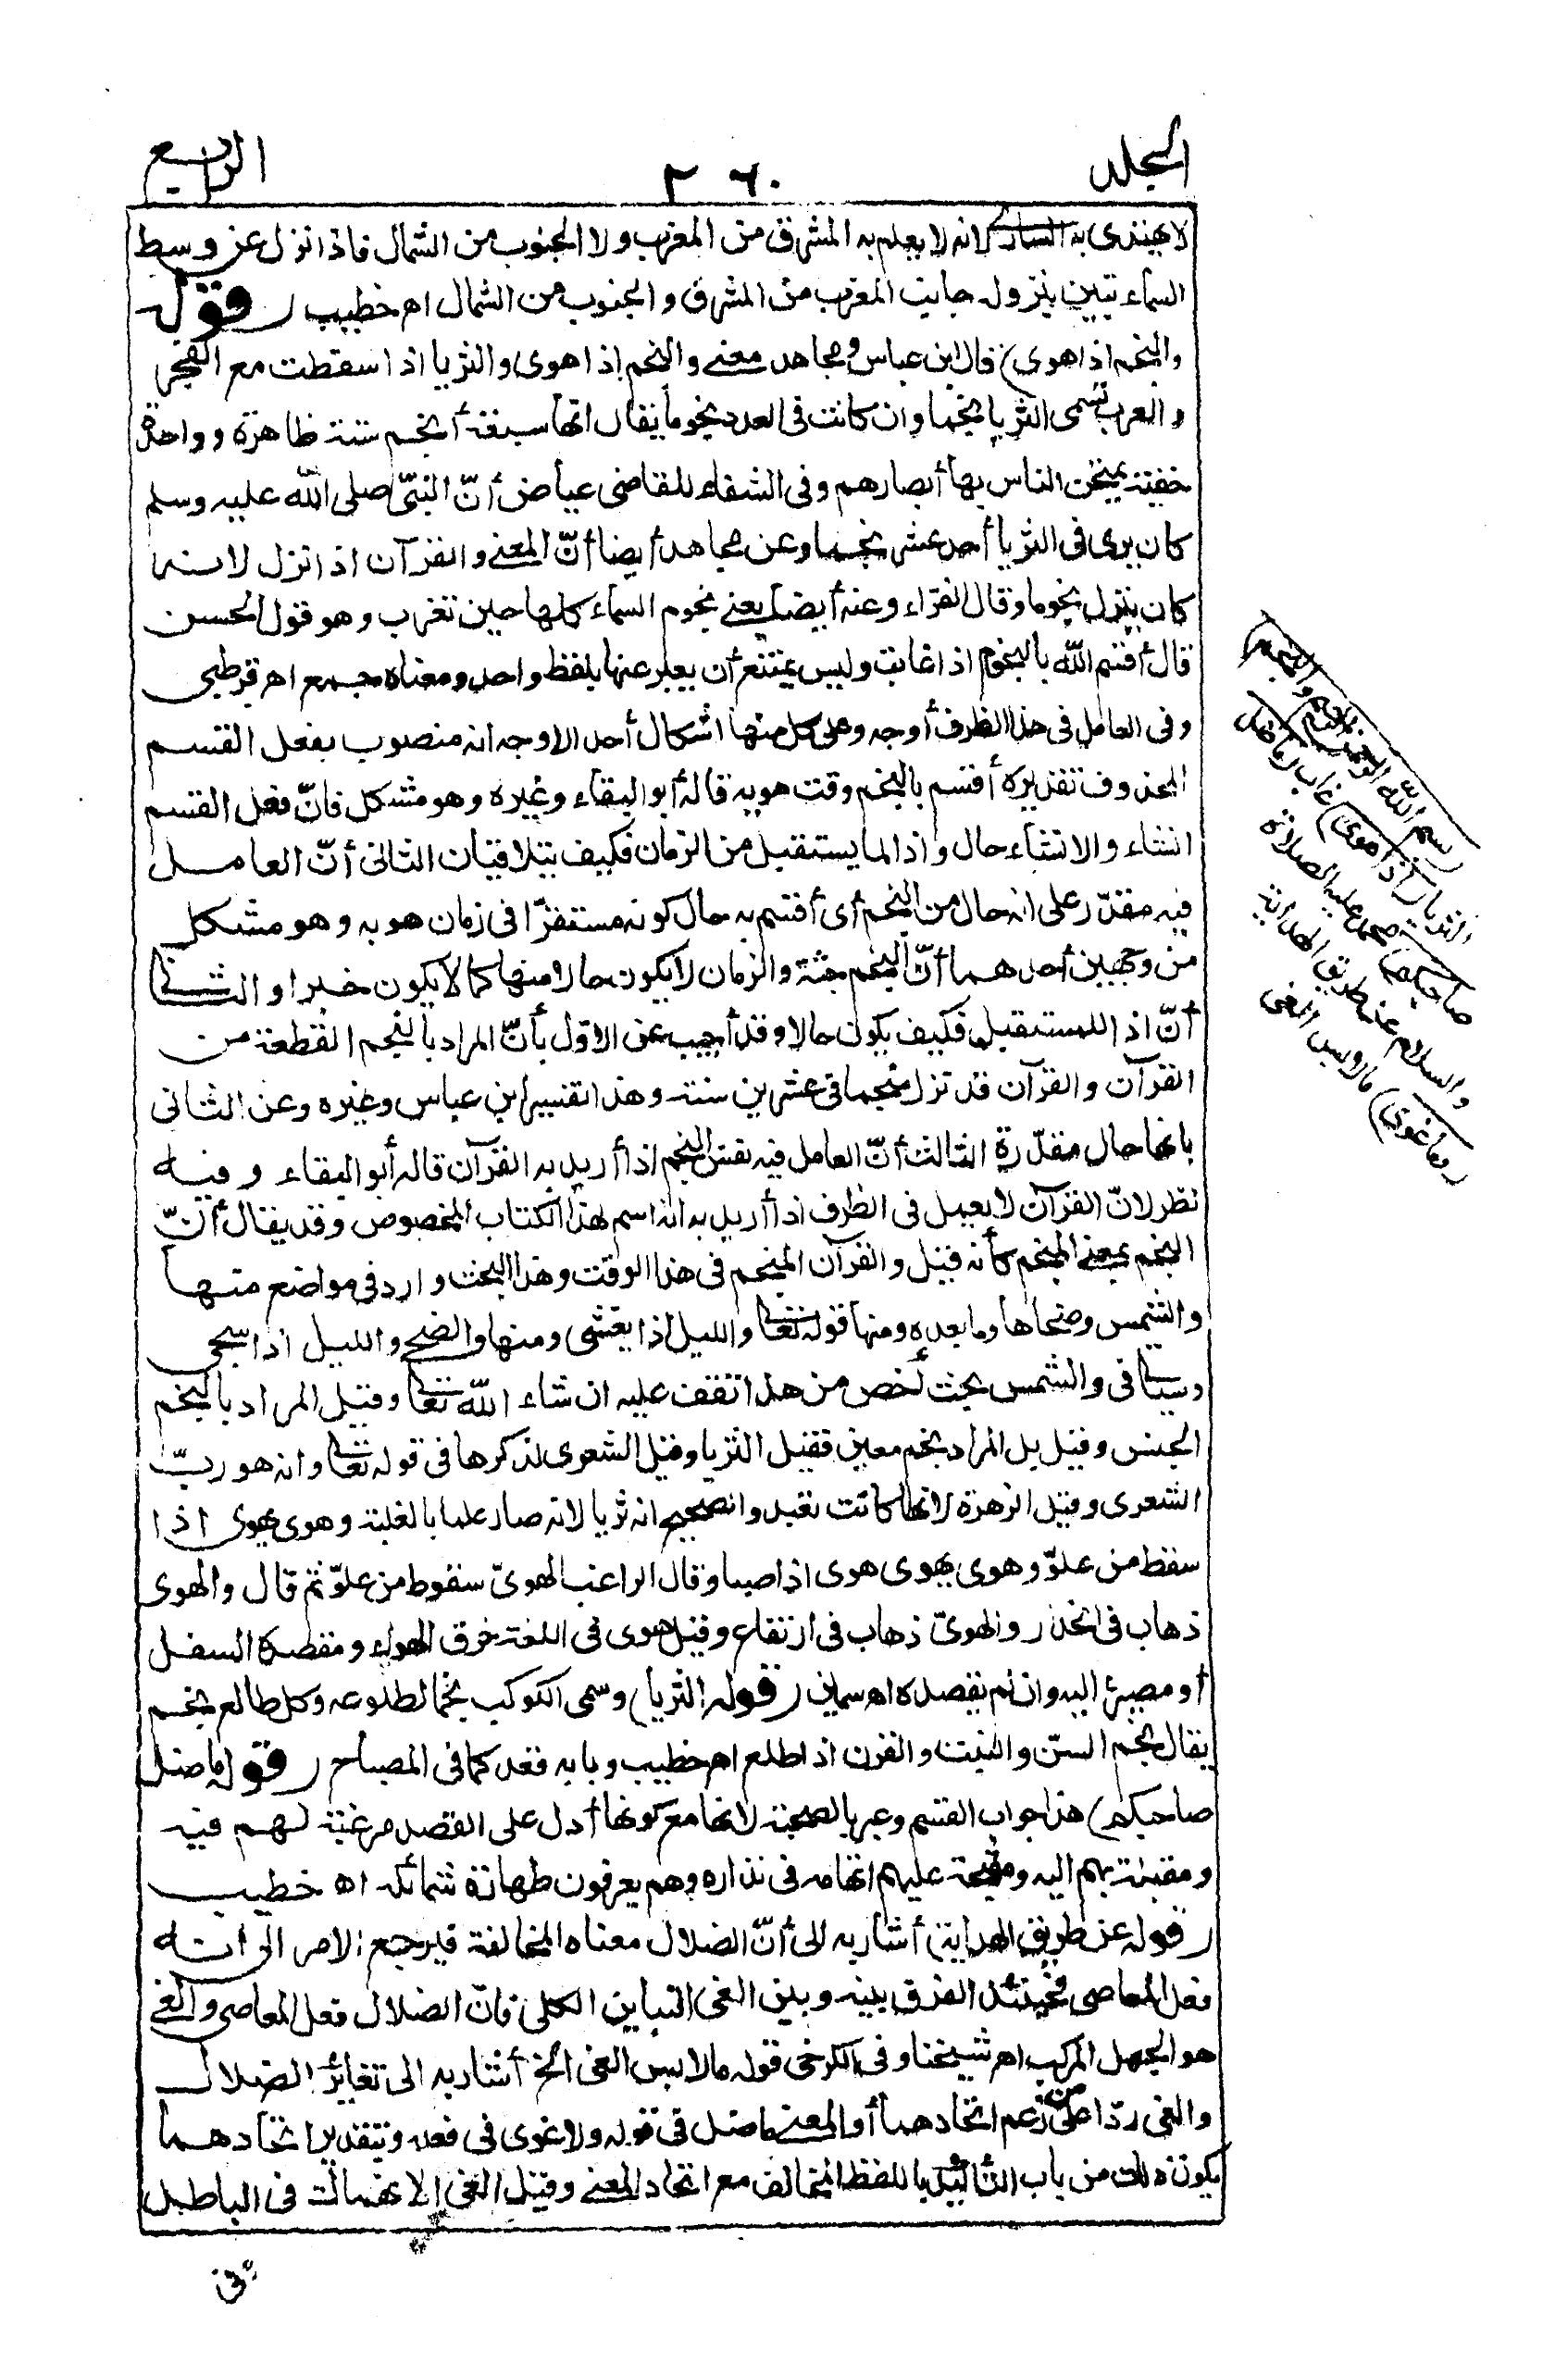 المجلد
٢٦٠
الرابع
لا يهتدى به السارى لانه لا يعلم به المشرق من المغرب ولا الجنوب من الشمال فاذا نزل عن وسط
السماء تبين بنزوله جانب المغرب من المشرق والجنوب من الشمال اه خطيب (قوله
والنجم اذا هوى) قال ابن عباس ومجاهد معنى والنجم إذا هوى والثريا اذا سقطت مع الفجر
والعرب تسمى الثريا نجما وان كانت فى العدد نجوما يقال انها سبعة أنجم ستة ظاهرة وواحدة
خفية يمتحن الناس بها أبصارهم وفى الشفاء للقاضى عياض أنّ النبىّ صلى الله عليه وسلم
كان يرى فى الثريا أحد عشر نجما وعن مجاهد أيضا أنّ المعنى والقرآن اذا نزل لانه
كان ينزل نجوما وقال الفراء وعنه أيضا يعنى نجوم السماء كلها حين تغرب وهو قول الحسن
قال أقسم الله بالنجوم اذا غابت وليس يمتنع أن يعبر عنها بلفظ واحد ومعناه جمع اه قرطبى
وفى العامل فى هذا الظرف أوجه وعلى كل منها اشكال أحد الاوجه انه منصوب بفعل القسم
المحذوف تقديره أقسم بالنجم وقت هويه قاله أبو البقاء وغيره وهو مشكل فانّ فعل القسم
انشاء والانشاء حال واذا لما يستقبل من الزمان فكيف يتلاقيان الثانى أنّ العامل
فيه مقدّر على انه حال من النجم أى أقسم به حال كونه مستقرّا فى زمان هويه وهو مشكل
من وجهين أحدهما أنّ النجم جثة والزمان لا يكون حالا منها كما لا يكون خبرا والثانى
أنّ اذا للمستقبل فكيف يكون حالا وقد أجيب عن الاوّل بأنّ المراد بالنجم القطعة من
القرآن والقرآن قد نزل منجما فى عشرين سنة وهذا تفسير ابن عباس وغيره وعن الثانى
بانها حال مقدّرة الثالث أنّ العامل فيه نفس النجم اذا أريد به القرآن قاله أبو البقاء وفيه
نظر لانّ القرآن لا يعمل فى الظرف اذا أريد به انه اسم لهذا الكتاب المخصوص وقد يقال أنّ
النجم بمعنى المنجم كأنه قيل والقرآن المنجم فى هذا الوقت وهذا البحث وارد فى مواضع منها
والشمس وضحاها وما بعده ومنها قوله تعالى والليل اذا يغشى ومنها والضحى والليل اذا سجى
وسيأتى فى والشمس بحث أخص من هذا تقف عليه ان شاء الله تعالى وقيل المراد بالنجم
الجنس وقيل بل المراد نجم معين فقيل الثريا وقيل الشعرى لذكرها فى قوله تعالى وانه هو ربّ
الشعرى وقيل الزهرة لانها كانت تعبد والصحيح انه ثريا لانه صار علما بالغلبة وهوى يهوى اذا
سقط من علوّ وهوى يهوى هوى اذا صبا وقال الراغب الهوىّ سقوط من علوّ ثم قال والهوى
ذهاب فى انحدار والهوىّ ذهاب فى ارتفاع وقيل هوى فى اللغة خرق الهواء ومقصده السفل
أو مصيره اليه وان لم يقصده اه سمين (قوله الثريا) وسمى الكوكب نجما لطلوعه وكل طالع نجم
يقال نجم السنّ والنبت والقرن اذا طلع اه خطيب وبابه قعد كما فى المصباح (قوله ما ضل
صاحبكم) هذا جواب القسم وعبر بالصحبة لانها مع كونها أدل على القصد مرغبة لهم فيه
ومقبلة بهم اليه ومقبحة عليهم اتهامه فى نذاره وهم يعرفون طهارة شمائله اه خطيب
(قوله عن طريق الهداية) أشار به الى أنّ الضلال معناه المخالفة فيرجع الامر الى انه
فعل المعاصى فحينئذ الفرق بينه وبين الغى التباين الكلى فانّ الضلال فعل المعاصى والغى
هو الجهل المركب اه شيخنا وفى الكرخى قوله ما لابس الغى الخ أشار به الى تغاير الضلال
والغى ردّا على من زعم اتحادهما أو المعنى ما ضل فى قوله ولا غوى فى فعله وبتقدير اتحادهما
يكون ذلك من باب التأكيد باللفظ المخالف مع اتحاد المعنى وقيل الغى الانهماك فى الباطل
(بسم الله الرحمن الرحيم والنجم)
الثريا (اذا هوى) غاب (ما ضل
صاحبكم) محمد عليه الصلاة
والسلام عن طريق الهداية
(وما غوى) ما لابس الغى